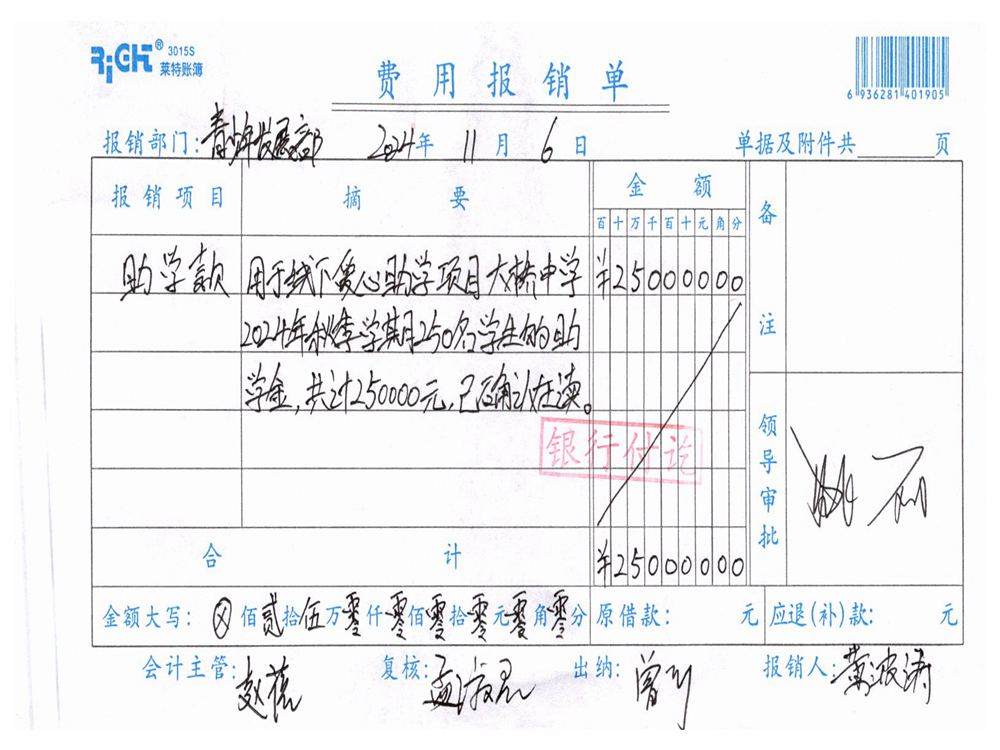 RiGHT® 3015S
莱特账簿
费用报销单
6 936281 401905
报销部门：青少年发展部 2024年 11月 6日 单据及附件共 页
报销项目 摘要 金额 备注
百十万千百十元角分
助学款 用于线下爱心助学项目大桥中学 ¥25000000
2024年秋季学期250名学生的助
学金，共计250000元，已确认在读。
银行付讫
领导审批
合计 ¥25000000
金额大写：⊗佰贰拾伍万零仟零佰零拾零元零角零分 原借款： 元 应退(补)款： 元
会计主管： 复核： 出纳： 曾 报销人： 黄波涛